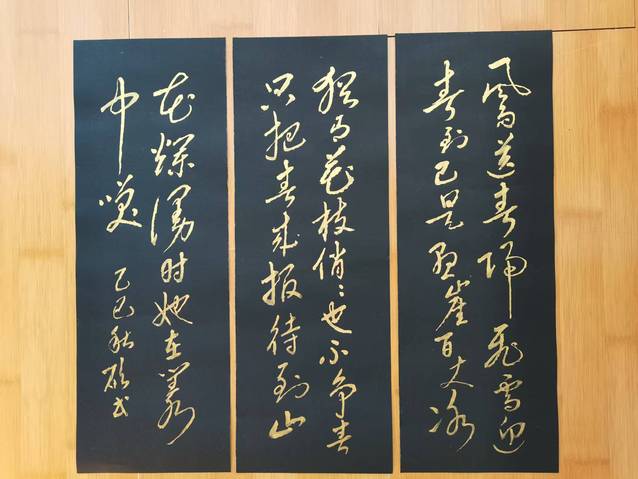 风雨送春归飞雪迎
春到已是悬崖百丈冰
犹有花枝俏々也不争春
只把春来报待到山
花烂漫时她在丛
中笑 乙巳秋